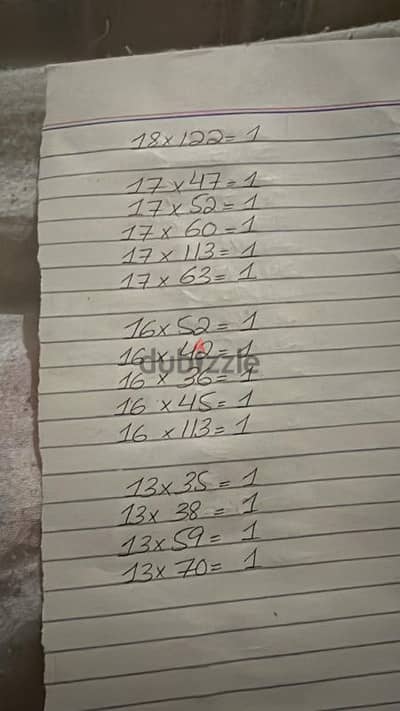 18x122=1
17x47=1
17x52=1
17x60=1
17x113=1
17x63=1
16x52=1
16x42=1
dubizzle
16x36=1
16x45=1
16x113=1
13x35=1
13x38=1
13x59=1
13x70=1